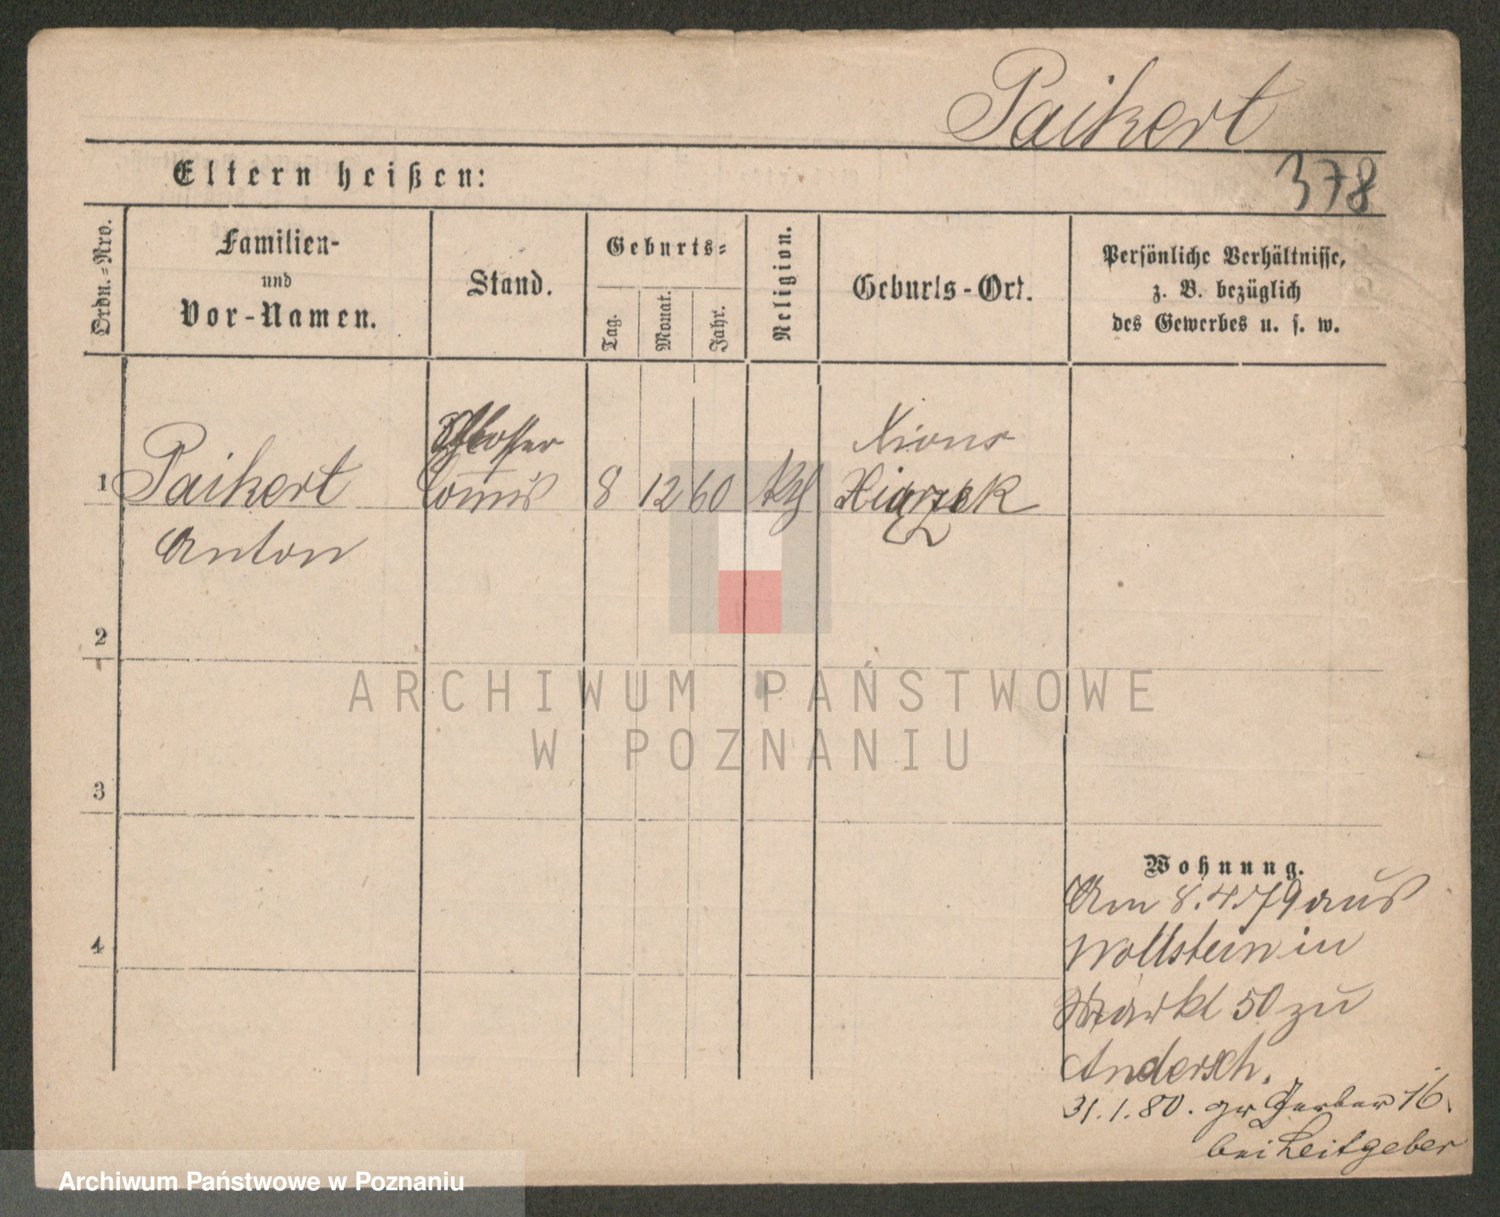 Paikert
378
Eltern heißen:
Ordn.-Nro.
Familien-
und
Vor-Namen.
Stand.
Geburts-
Tag.
Monat.
Jahr.
Religion.
Geburts-Ort.
Persönliche Verhältnisse,
z. B. bezüglich
des Gewerbes u. s. w.
Xions
1 Paikert Commis 8 12 60 kth
Anton
2
3
4
ARCHIWUM PAŃSTWOWE
W POZNANIU
Wohnung.
Am 8.4.79 aus
Wollstein in
Markt 50 zu
Andersch.
31.1.80. gr Gerber 16.
bei Leitgeber
Archiwum Państwowe w Poznaniu